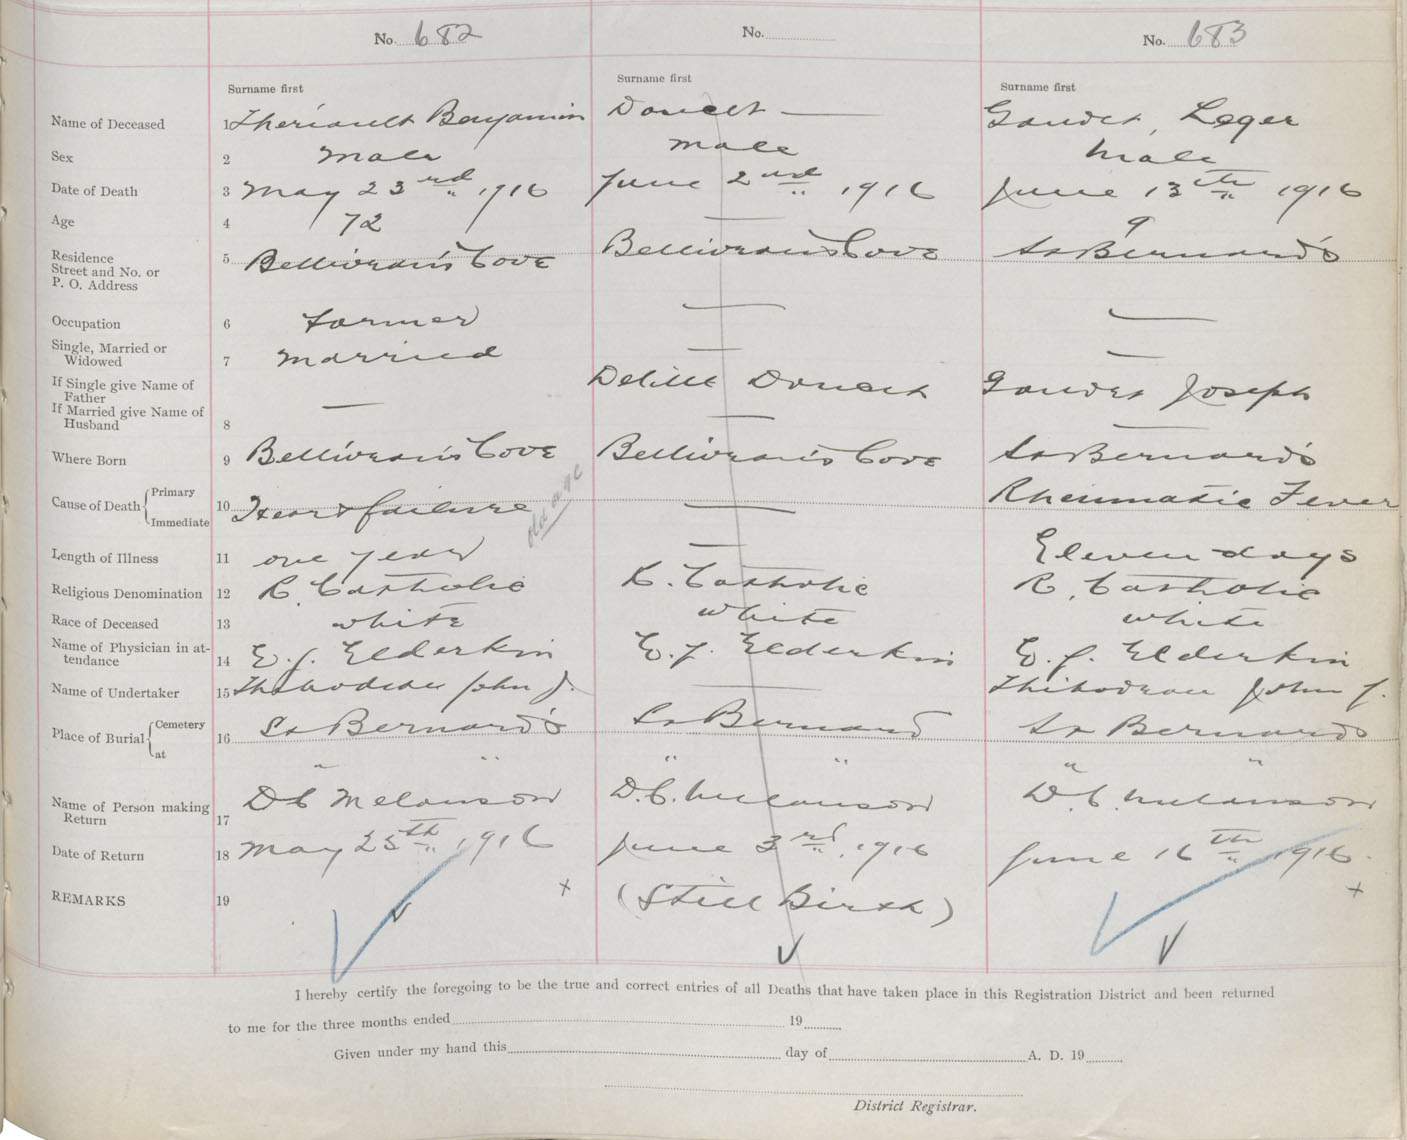 No. 682 No. No. 683
Surname first Surname first Surname first
Name of Deceased 1 Theriault Benjamin Doucet — Gaudet, Leger
Sex 2 male male male
Date of Death 3 May 23rd 1916 June 2nd 1916 June 13th 1916
Age 4 72 — 9
Residence
Street and No. or
P. O. Address 5 Belliveau's Cove Belliveau's Cove St Bernard's
Occupation 6 farmer — —
Single, Married or
Widowed 7 married — —
If Single give Name of
Father Doucet Gaudet Joseph
If Married give Name of
Husband 8 — — —
Where Born 9 Belliveau's Cove Belliveau's Cove St Bernard's
Cause of Death { Primary Rheumatic Fever
Immediate 10 Heart failure old age —
Length of Illness 11 one year — Eleven days
Religious Denomination 12 R. Catholic R. Catholic R. Catholic
Race of Deceased 13 white white white
Name of Physician in at-
tendance 14 E. J. Elderkin E. J. Elderkin E. J. Elderkin
Name of Undertaker 15 Thibodeau John J. — Thibodeau John J.
Place of Burial { Cemetery
at 16 St Bernard's St Bernard St Bernard's
" " " " " "
Name of Person making
Return 17 D C Melanson D. C. Melanson D. C. Melanson
Date of Return 18 May 25th 1916 June 3rd, 1916 June 16th 1916.
REMARKS 19 x (Still Birth) x
I hereby certify the foregoing to be the true and correct entries of all Deaths that have taken place in this Registration District and been returned
to me for the three months ended 19
Given under my hand this day of A. D. 19
District Registrar.